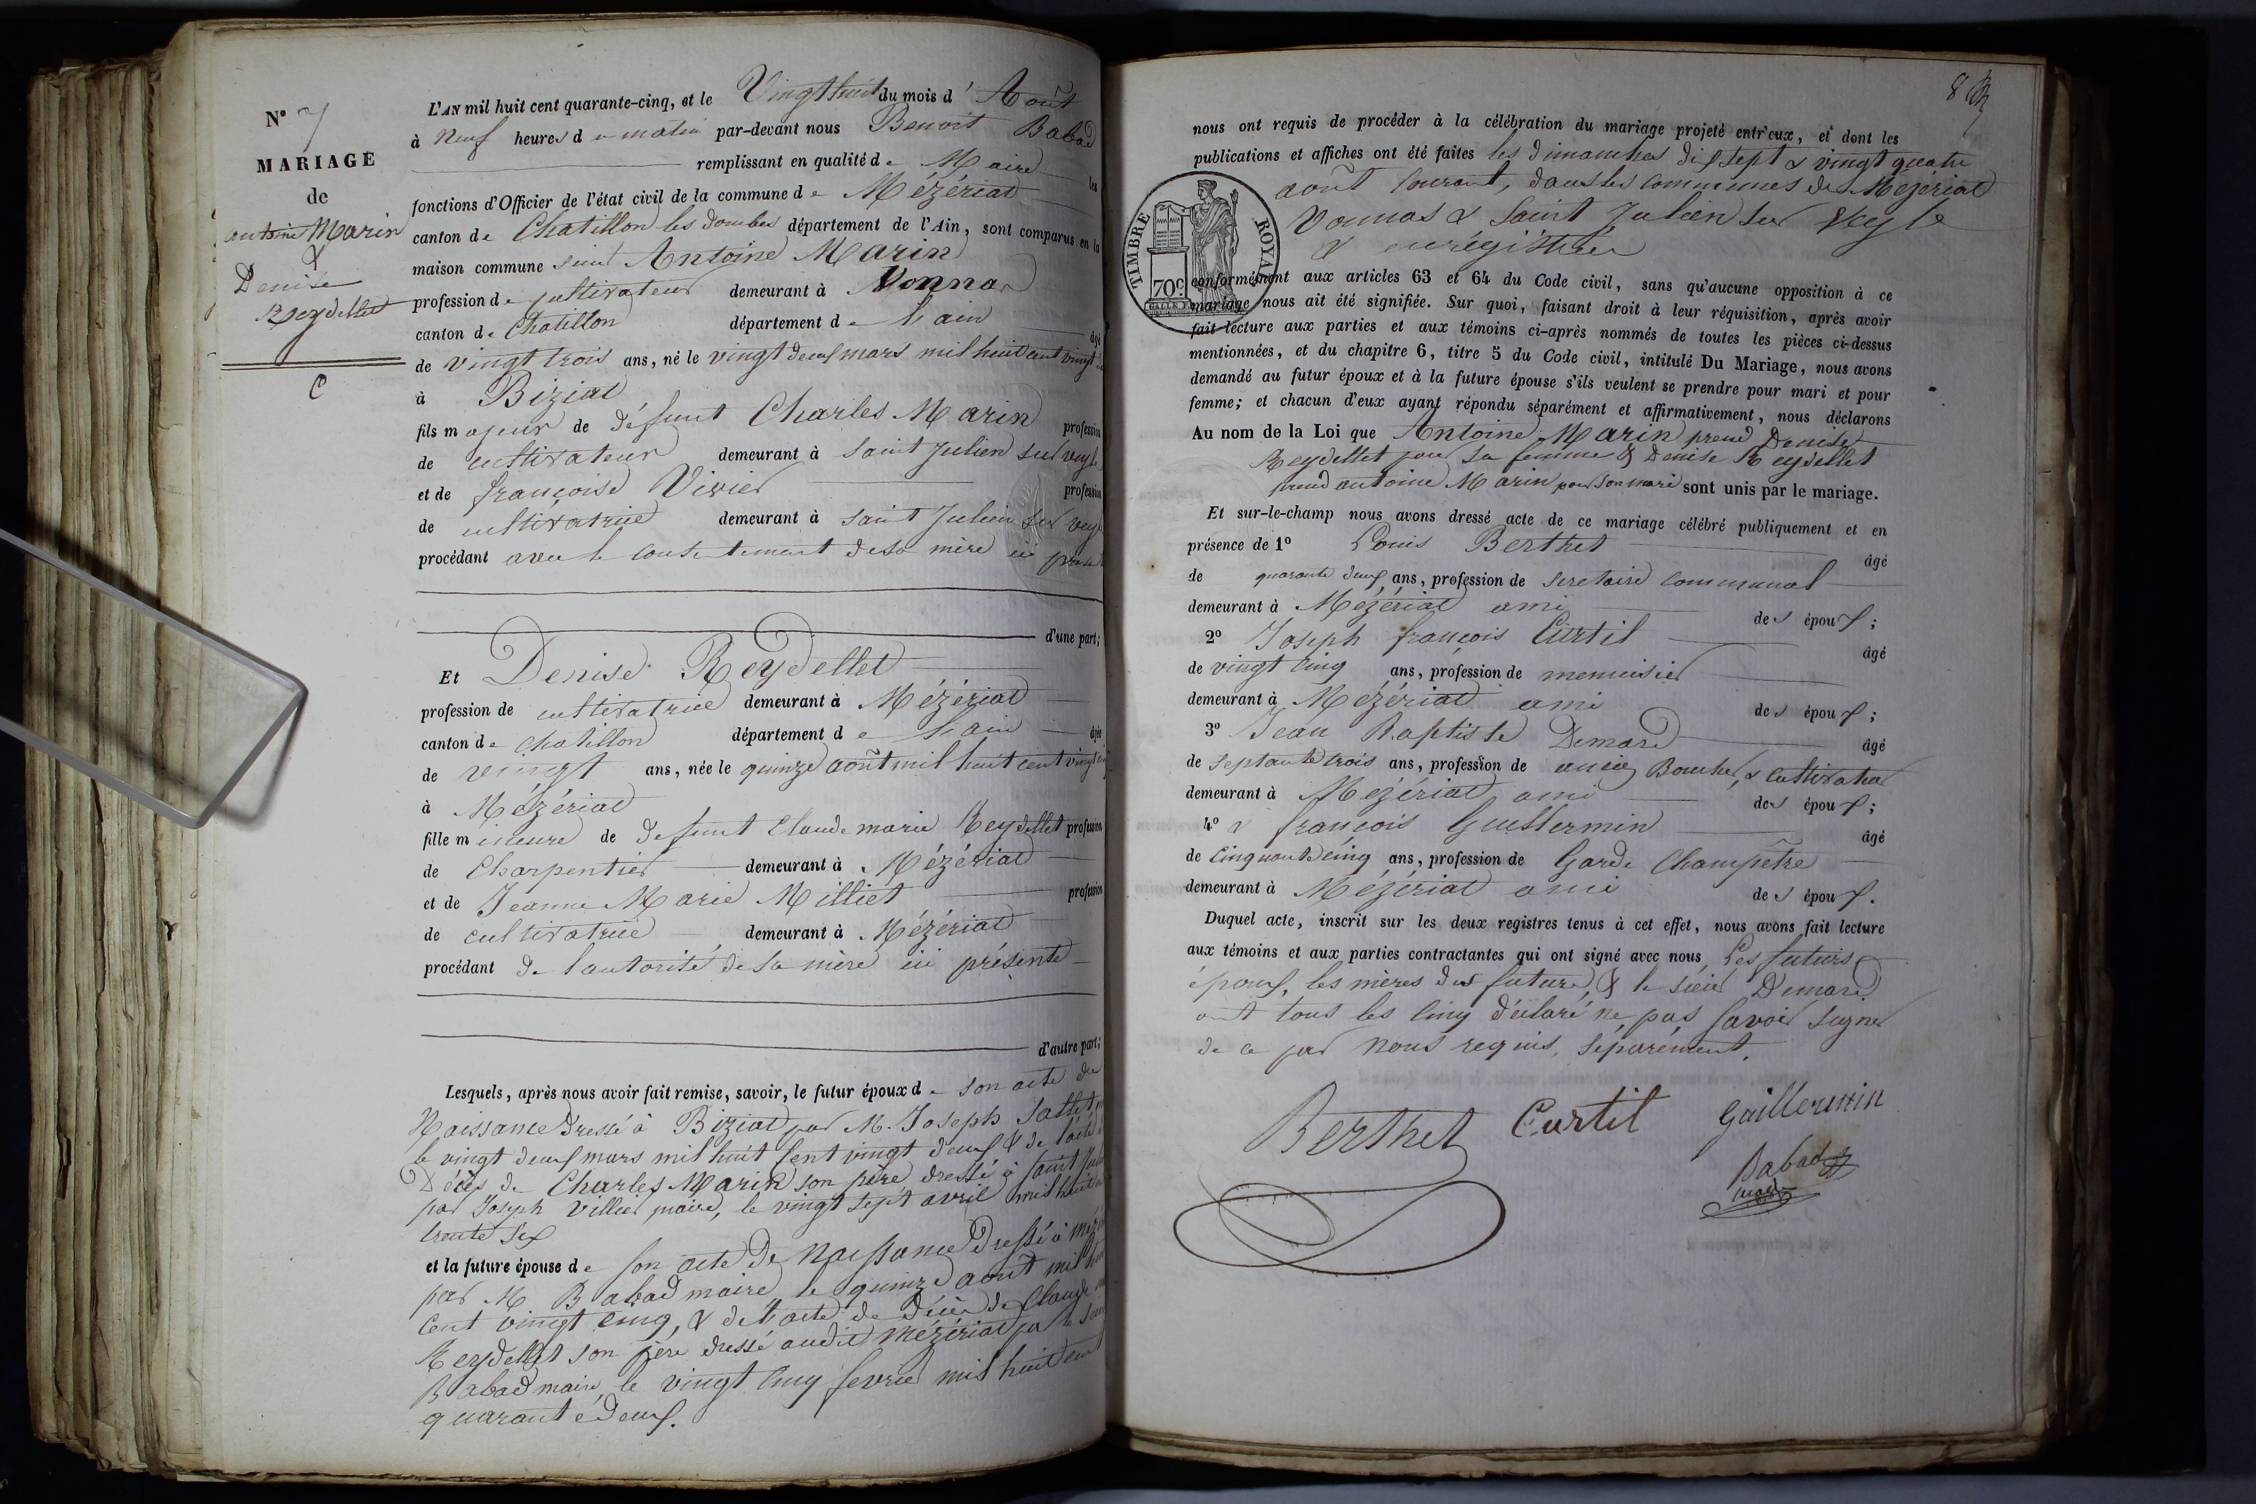 N° 7
MARIAGE
de
antoine Marin
&
Denise
Reydellet
C
L'AN mil huit cent quarante-cinq, et le Vingt huit du mois d' Août
à neuf heures du matin par-devant nous Benoit Babad
remplissant en qualité de Maire les
fonctions d'Officier de l'état civil de la commune de Mézériat
canton de Chatillon les dombes département de l'Ain, sont comparus en la
maison commune sieur Antoine Marin
profession de cultivateur demeurant à Vonnas
canton de Chatillon département de l'ain âgé
de vingt trois ans, né le vingt deux mars mil huit cent vingt
à Biziat
fils majeur de défunt Charles Marin profession
de cultivateur demeurant à Saint Julien sur veyle
et de françoise Vivier profession
de cultivatrice demeurant à saint Julien sur veyle
procédant avec le consentement de sa mère ici
d'une part;
Et Denise Reydellet
profession de cultivatrice demeurant à Mézériat
canton de chatillon département de l'ain âgée
de vingt ans, née le quinze août mil huit cent vingt
à Mézériat
fille mineure de defunt Claude marie Reydellet profession
de Charpentier demeurant à Mézériat
et de Jeanne Marie Milliet profession
de cultivatrice demeurant à Mézériat
procédant de l'autorité de sa mère ici présente
d'autre part;
Lesquels, après nous avoir fait remise, savoir, le futur époux de son acte de
Naissance dressé à Biziat par M. Joseph
le vingt deux mars mil huit cent vingt deux & de l'acte
Décès de Charles Marin son père dressé à Saint
par Joseph Villier maire, le vingt sept avril mil huit
trente six
et la future épouse de son acte de Naissance dressé à
par M Babad maire le quinze août mil
cent vingt cinq, & de l'acte de décès de Claude
Reydellet son père dressé audit Mézériat par le
Babad maire, le vingt cinq fevrier mil huit cent
quarante deux.
8
nous ont requis de procéder à la célébration du mariage projeté entr'eux, et dont les
publications et affiches ont été faites les dimanches dix sept & vingt quatre
août courant, dans les communes de Mézériat
Vonnas & Saint Julien sur Veyle
& enrégistrée
TIMBRE ROYAL
70c
conformément aux articles 63 et 64 du Code civil, sans qu'aucune opposition à ce
mariage nous ait été signifiée. Sur quoi, faisant droit à leur réquisition, après avoir
fait lecture aux parties et aux témoins ci-après nommés de toutes les pièces ci-dessus
mentionnées, et du chapitre 6, titre 5 du Code civil, intitulé Du Mariage, nous avons
demandé au futur époux et à la future épouse s'ils veulent se prendre pour mari et pour
femme; et chacun d'eux ayant répondu séparément et affirmativement, nous déclarons
Au nom de la Loi que Antoine Marin prend Denise
Reydellet pour sa femme & Denise Reydellet
prend antoine Marin pour son mari sont unis par le mariage.
Et sur-le-champ nous avons dressé acte de ce mariage célébré publiquement et en
présence de 1° Louis Berthet âgé
de quarante deux ans, profession de secretaire communal
demeurant à Mézériat ami des époux;
2° Joseph françois Curtil âgé
de vingt cinq ans, profession de menuisier
demeurant à Mézériat ami des époux;
3° Jean Baptiste Demard âgé
de septante trois ans, profession de ancien Boucher, & cultivateur
demeurant à Mézériat ami des époux;
4° & françois Guillermin âgé
de cinquante cinq ans, profession de Garde Champêtre
demeurant à Mézériat ami des époux.
Duquel acte, inscrit sur les deux registres tenus à cet effet, nous avons fait lecture
aux témoins et aux parties contractantes qui ont signé avec nous Les futurs
époux, les mères des futurs, & le sieur Demard
ont tous les cinq déclaré ne pas savoir signer
de ce par nous requis, séparément.
Berthet Curtil Guillermin
Babad
maire